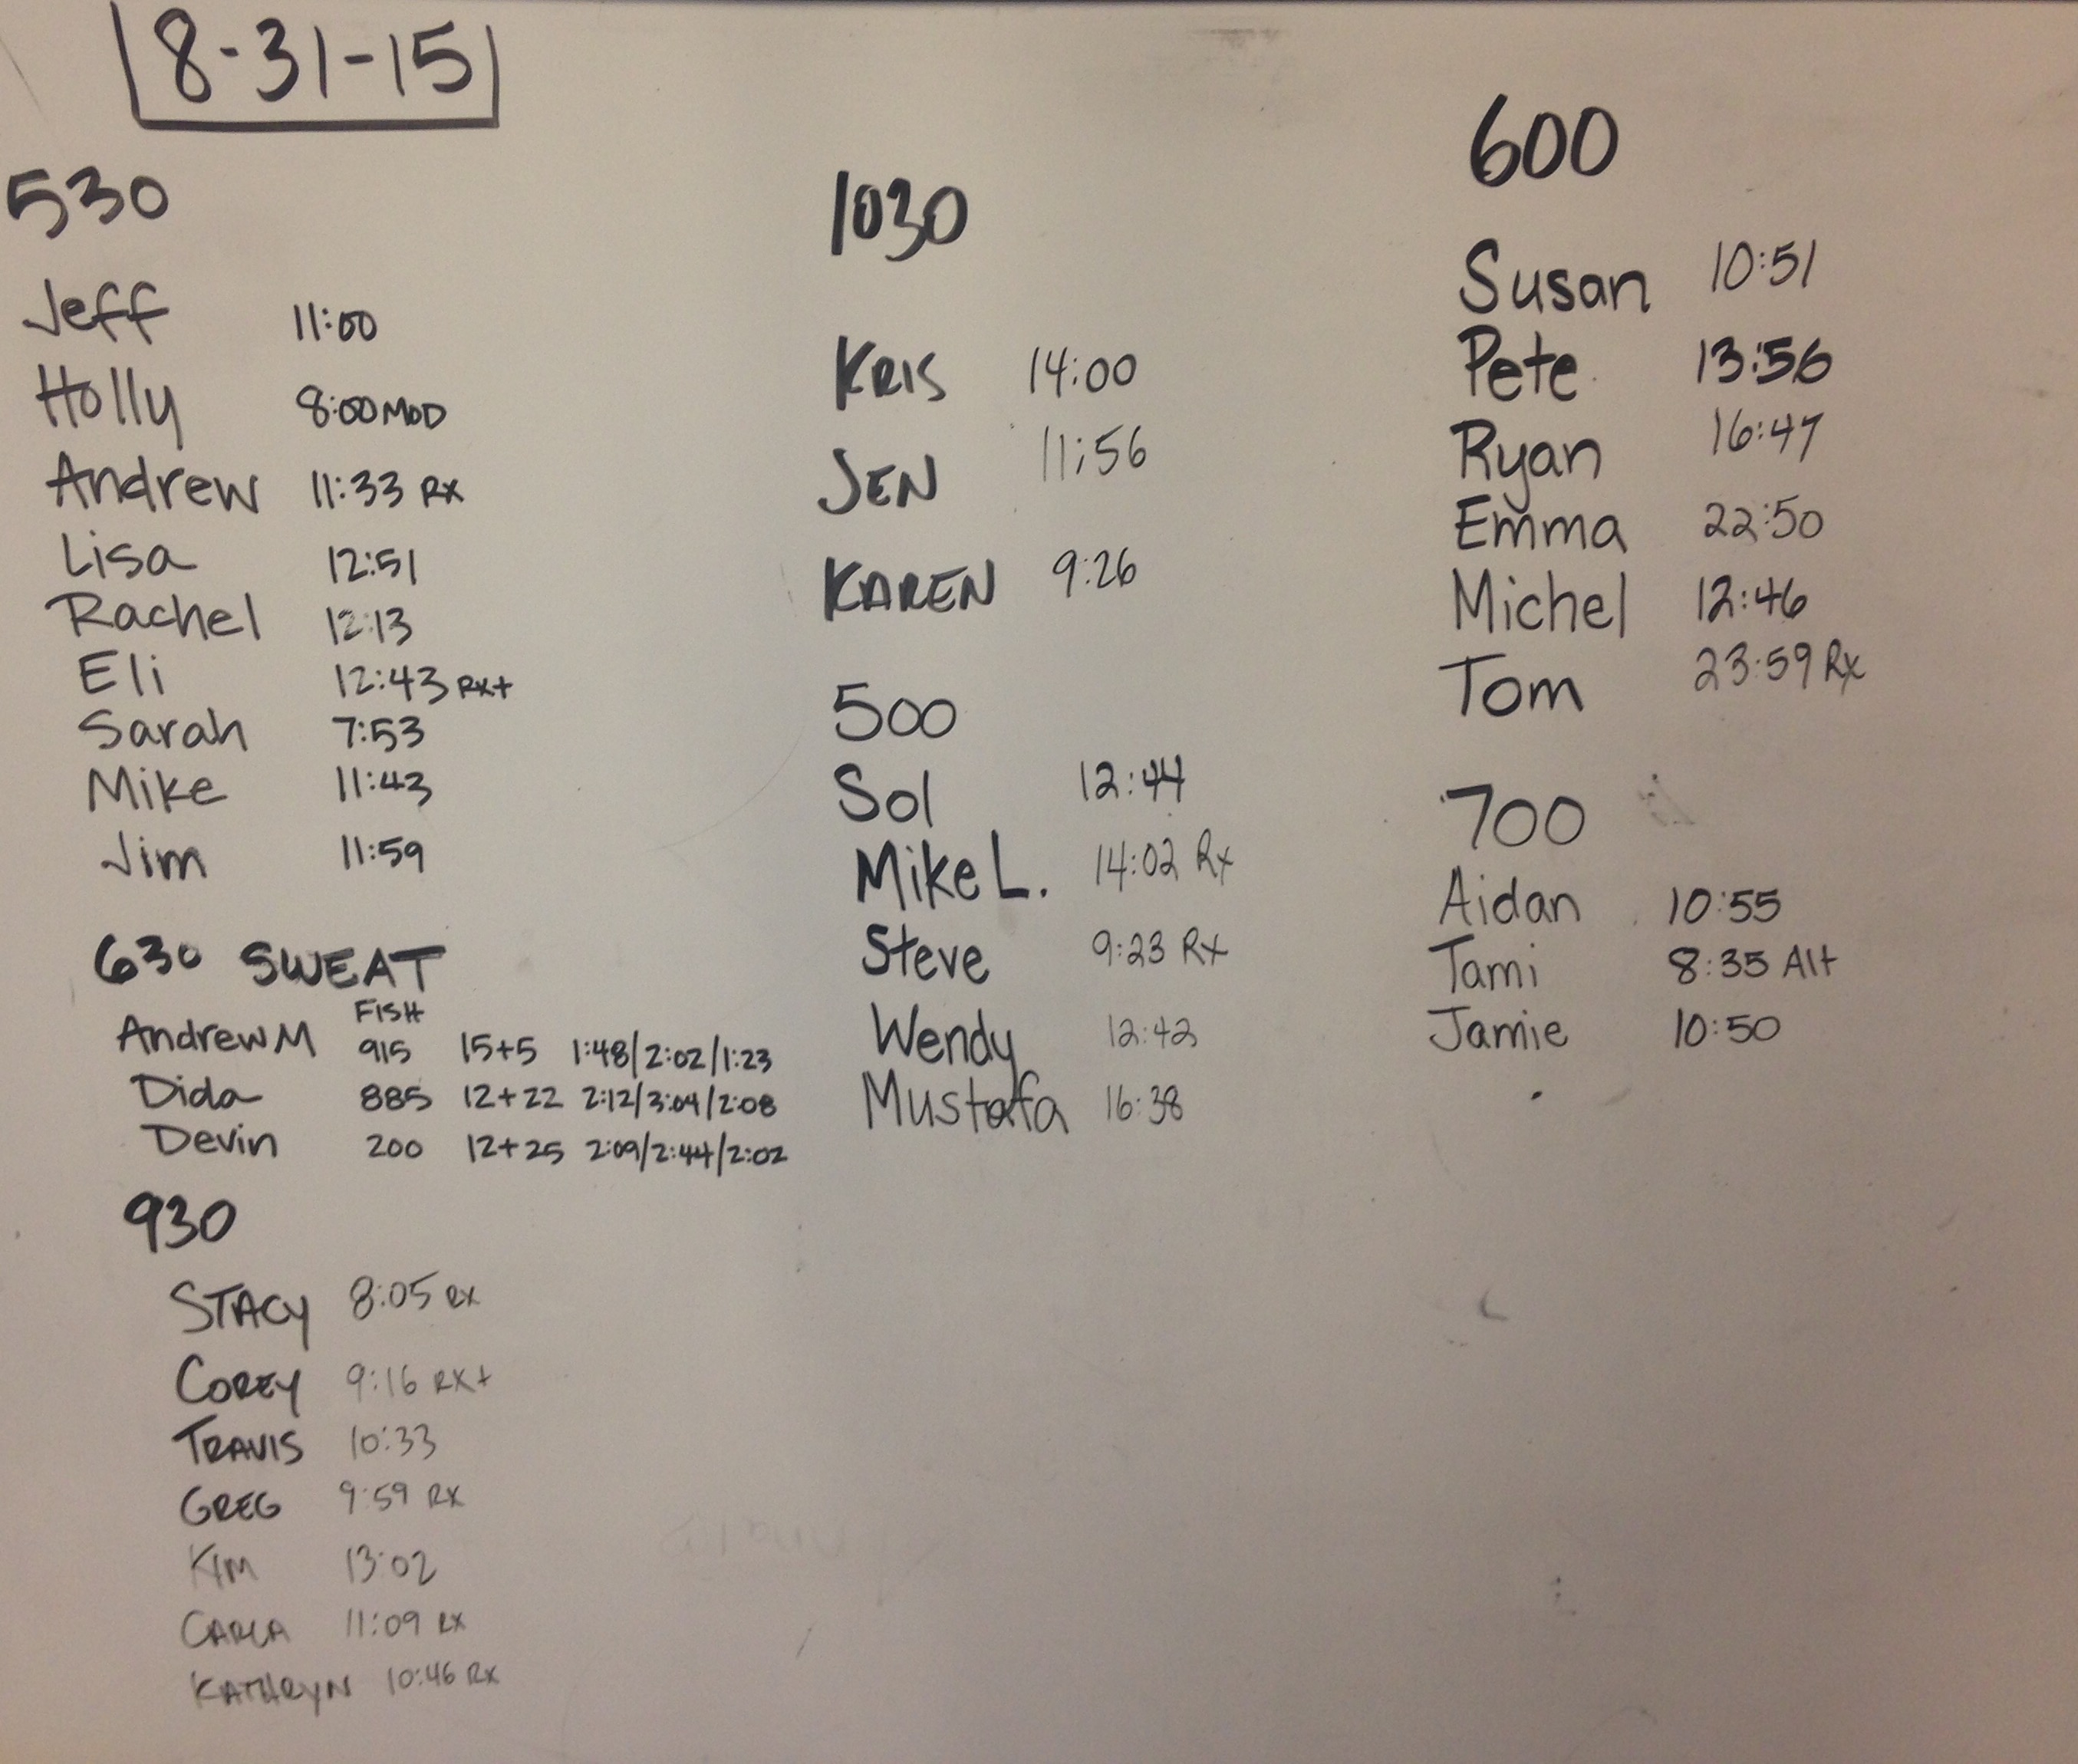 8-31-15
530
Jeff 11:00
Holly 8:00 MOD
Andrew 11:33 RX
Lisa 12:51
Rachel 12:13
Eli 12:43 RX+
Sarah 7:53
Mike 11:43
Jim 11:59
630 SWEAT
FISH
Andrew M 915 15+5 1:48/2:02/1:23
Dida 885 12+22 2:12/3:04/2:08
Devin 200 12+25 2:09/2:44/2:02
930
STACY 8:05 RX
COREY 9:16 RX+
TRAVIS 10:33
GREG 9:59 RX
KIM 13:02
CARLA 11:09 RX
KATHRYN 10:46 RX
1030
KRIS 14:00
JEN 11:56
KAREN 9:26
500
Sol 12:44
Mike L. 14:02 Rx
Steve 9:23 Rx
Wendy 12:42
Mustafa 16:38
600
Susan 10:51
Pete 13:56
Ryan 16:47
Emma 22:50
Michel 12:46
Tom 23:59 Rx
700
Aidan 10:55
Tami 8:35 Alt
Jamie 10:50